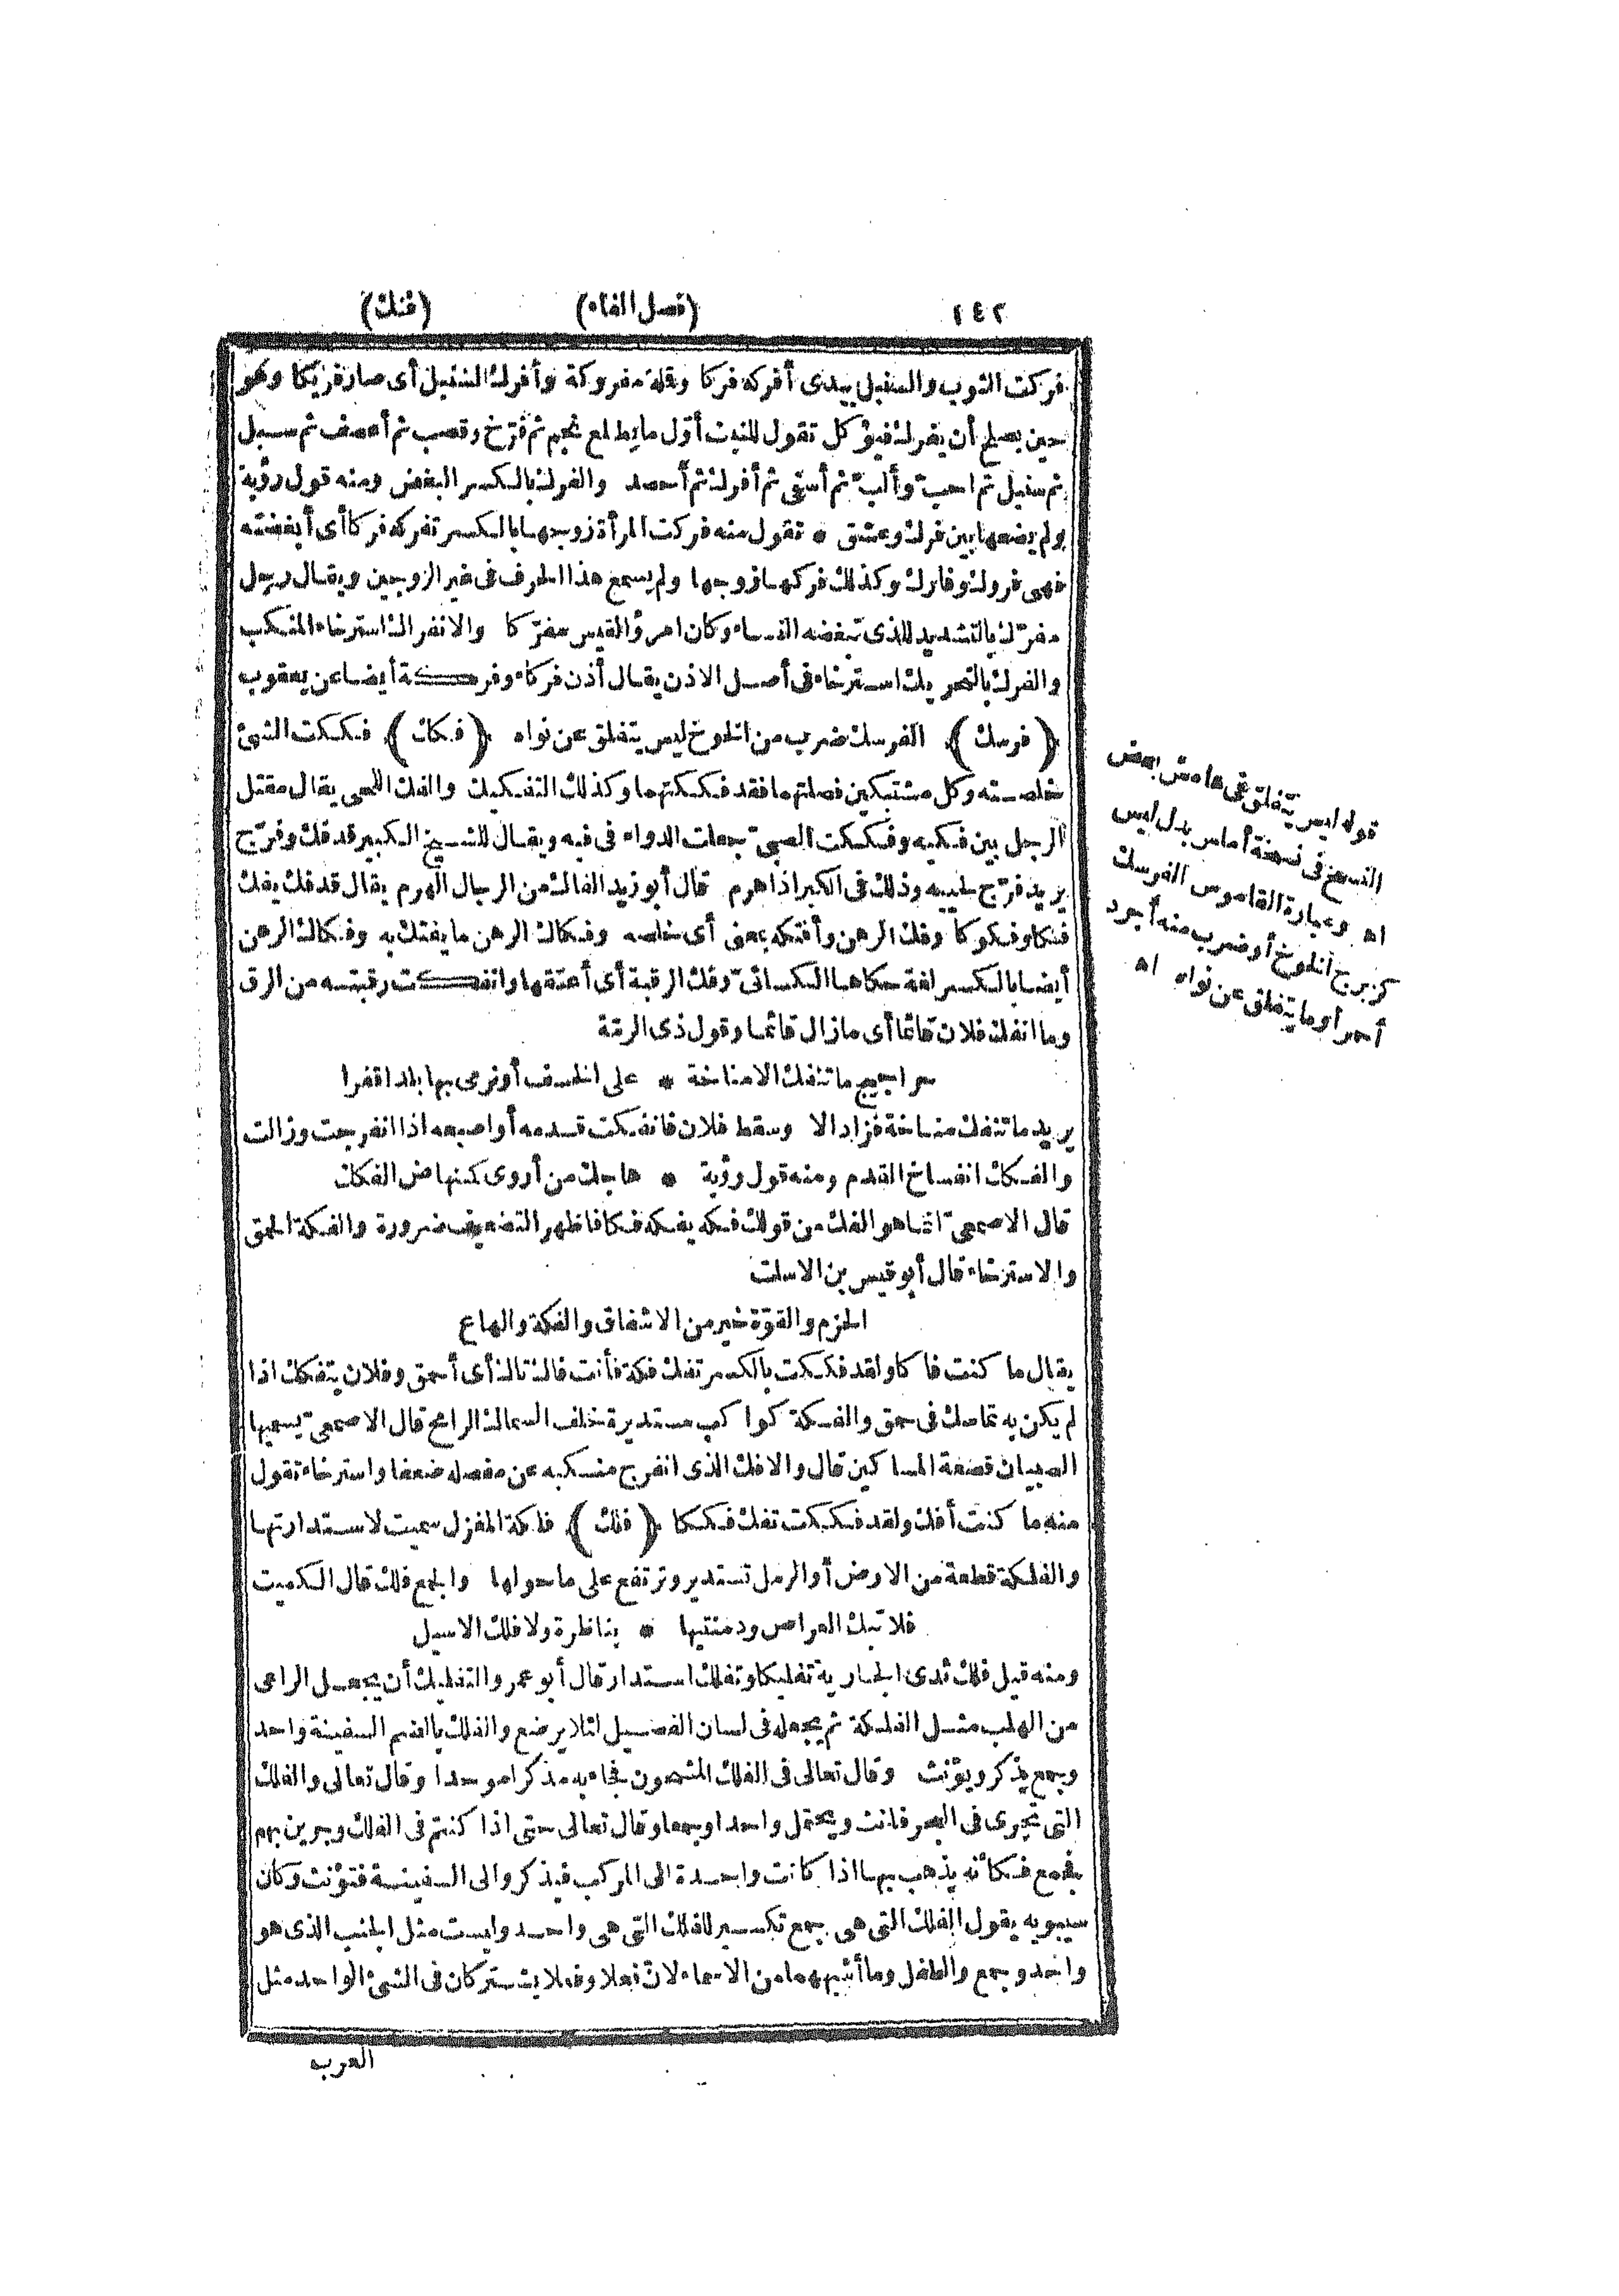 ١٤٢ (فصل الفاء) (فنك)
فركت الثوب والسنبل بيدى أفركه فركا وقلة مفروكة وأفرك السنبل أى صار فريكا وهو
حين يصلح أن يفرك فيؤكل تقول للنبت أوّل ما يطلع نجم ثم فرّخ وقصب ثم أعصف ثم سبل
ثم سنبل ثم احبّ وألبّ ثم أسقى ثم أفرك ثم أحصد والفرك بالكسر البغض ومنه قول رؤبة
ولم يضعها بين فرك وعشق * تقول منه فركت المرأة زوجها بالكسر تفركه فركا أى أبغضته
فهى فروك وفارك وكذلك فركها زوجها ولم يسمع هذا الحرف فى غير الزوجين ويقال رجل
مفرّك بالتشديد للذى تبغضه النساء وكان امرؤ القيس مفرّكا والانفراك استرخاء المنكب
والفرك بالتحريك استرخاء فى أصل الاذن يقال أذن فركاء وفركة أيضا عن يعقوب
(فرسك) الفرسك ضرب من الخوخ ليس يتفلق عن نواه (فكك) فككت الشئ
خلصته وكل مشتبكين فصلتهما فقد فككتهما وكذلك التفكيك والفك اللحى يقال مقتل
الرجل بين فكيه وفككت الصبىّ جعلت الدواء فى فيه ويقال للشيخ الكبير قد فك وفرّج
يريد فرّج لحييه وذلك فى الكبر اذا هرم قال أبو زيد الفاك من الرجال الهرم يقال قد فك يفك
فكا وفكوكا وفك الرهن وأفتكه بمعنى أى خلصه وفكاك الرهن ما يفتك به وفكاك الرهن
أيضا بالكسر لغة حكاها الكسائىّ وفك الرقبة أى أعتقها وانفكت رقبته من الرق
وما انفك فلان قائما أى مازال قائما وقول ذى الرمّة
حراجيج ما تنفك الا مناخة * على الخسف أو نرمى بها بلدا قفرا
يريد ما تنفك مناخة فزاد الا وسقط فلان فانفكت قدمه أو اصبعه اذا انفرجت وزالت
والفكك انفساخ القدم ومنه قول رؤبة * هاجك من أروى كمنهاض الفكك
قال الاصمعىّ انما هو الفك من قولك فكه يفكه فكا فاظهر التضعيف ضرورة والفكة الحمق
والاسترخاء قال أبو قيس بن الاسلت
الحزم والقوّة خير من الاشفاق والفكة والهاع
يقال ما كنت فاكا ولقد فككت بالكسر تفك فكة فأنت فاك تاك أى أحمق وفلان يتفكك اذا
لم يكن به تماسك فى حمق والفكة كواكب مستديرة خلف السماك الرامح قال الاصمعىّ يسميها
الصبيان قصعة المساكين قال والافك الذى انفرج منكبه عن مفصله ضعفا واسترخاء تقول
منه ما كنت أفك ولقد فككت تفك فككا (فلك) فلكة المغزل سميت لاستدارتها
والفلكة قطعة من الارض أو الرمل تستدير وترتفع على ما حولها والجمع فلك قال الكميت
فلا تبك العراص ودمنتيها * بناظرة ولا فلك الاسيل
ومنه قيل فلك ثدى الجارية تفليكا وتفلك استدار قال أبو عمرو والتفليك أن يجعل الراعى
من الهلب مثل الفلكة ثم يجعله فى لسان الفصيل لئلا يرضع والفلك بالضم السفينة واحد
وجمع يذكر ويؤنث وقال تعالى فى الفلك المشحون فجاء به مذكرا موحدا وقال تعالى والفلك
التى تجرى فى البحر فانث ويحتمل واحدا وجمعا وقال تعالى حتى اذا كنتم فى الفلك وجرين بهم
فجمع فكأنه يذهب بها اذا كانت واحدة الى المركب فيذكر والى السفينة فتؤنث وكان
سيبويه يقول الفلك التى هى جمع تكسير للفلك التى هى واحد وليست مثل الجنب الذى هو
واحد وجمع والطفل وما أشبههما من الاسماء لانّ فعلا وفعلا يشتركان فى الشئ الواحد مثل
العرب
قوله ليس يتفلق فى هامش بعض
النسخ فى نسخة أملس بدل ليس
اه وعبارة القاموس الفرسك
كزبرج الخوخ أو ضرب منه أجرد
أحمر أو ما يتفلق عن نواه اه